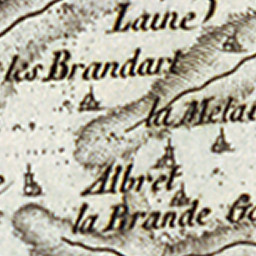 Laine)
les Brandart
la Metai
Albret
la Brande